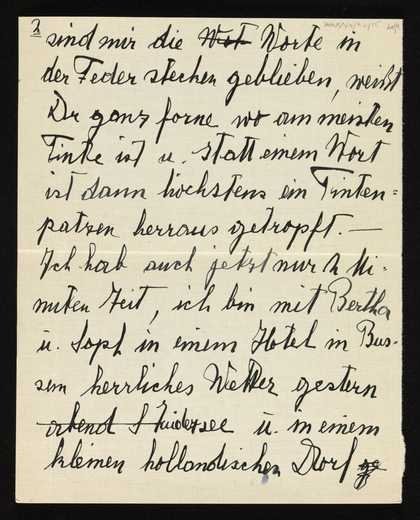 2
sind mir die Wot Worte in
der Feder stecken geblieben, weißt
Du ganz forne wo am meisten
Tinte ist u. statt einem Wort
ist dann höchstens ein Tinten-
patzen herraus getropft. —
Ich hab auch jetzt nur 2 Mi-
nuten Zeit, ich bin mit Bertha
u. Soph in einem Hotel in Bus-
sem herrliches Wetter gestern
abend S Zuidersee u. in einem
kleinen holländischen Dorf